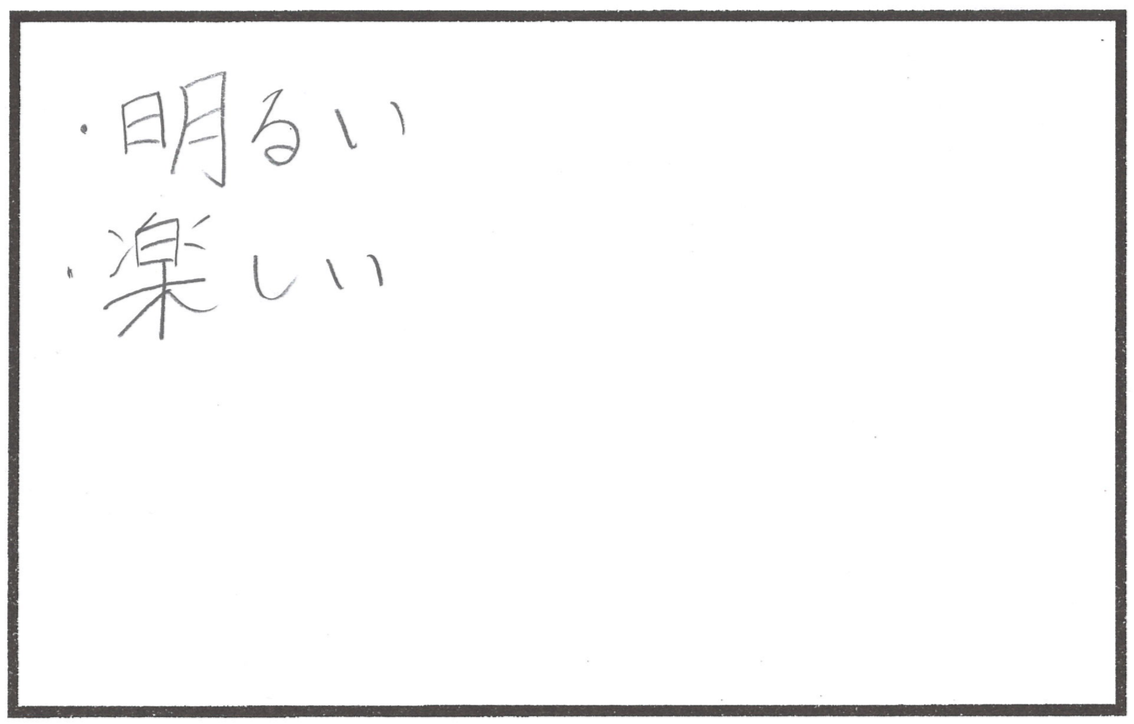 ・明るい
・楽しい